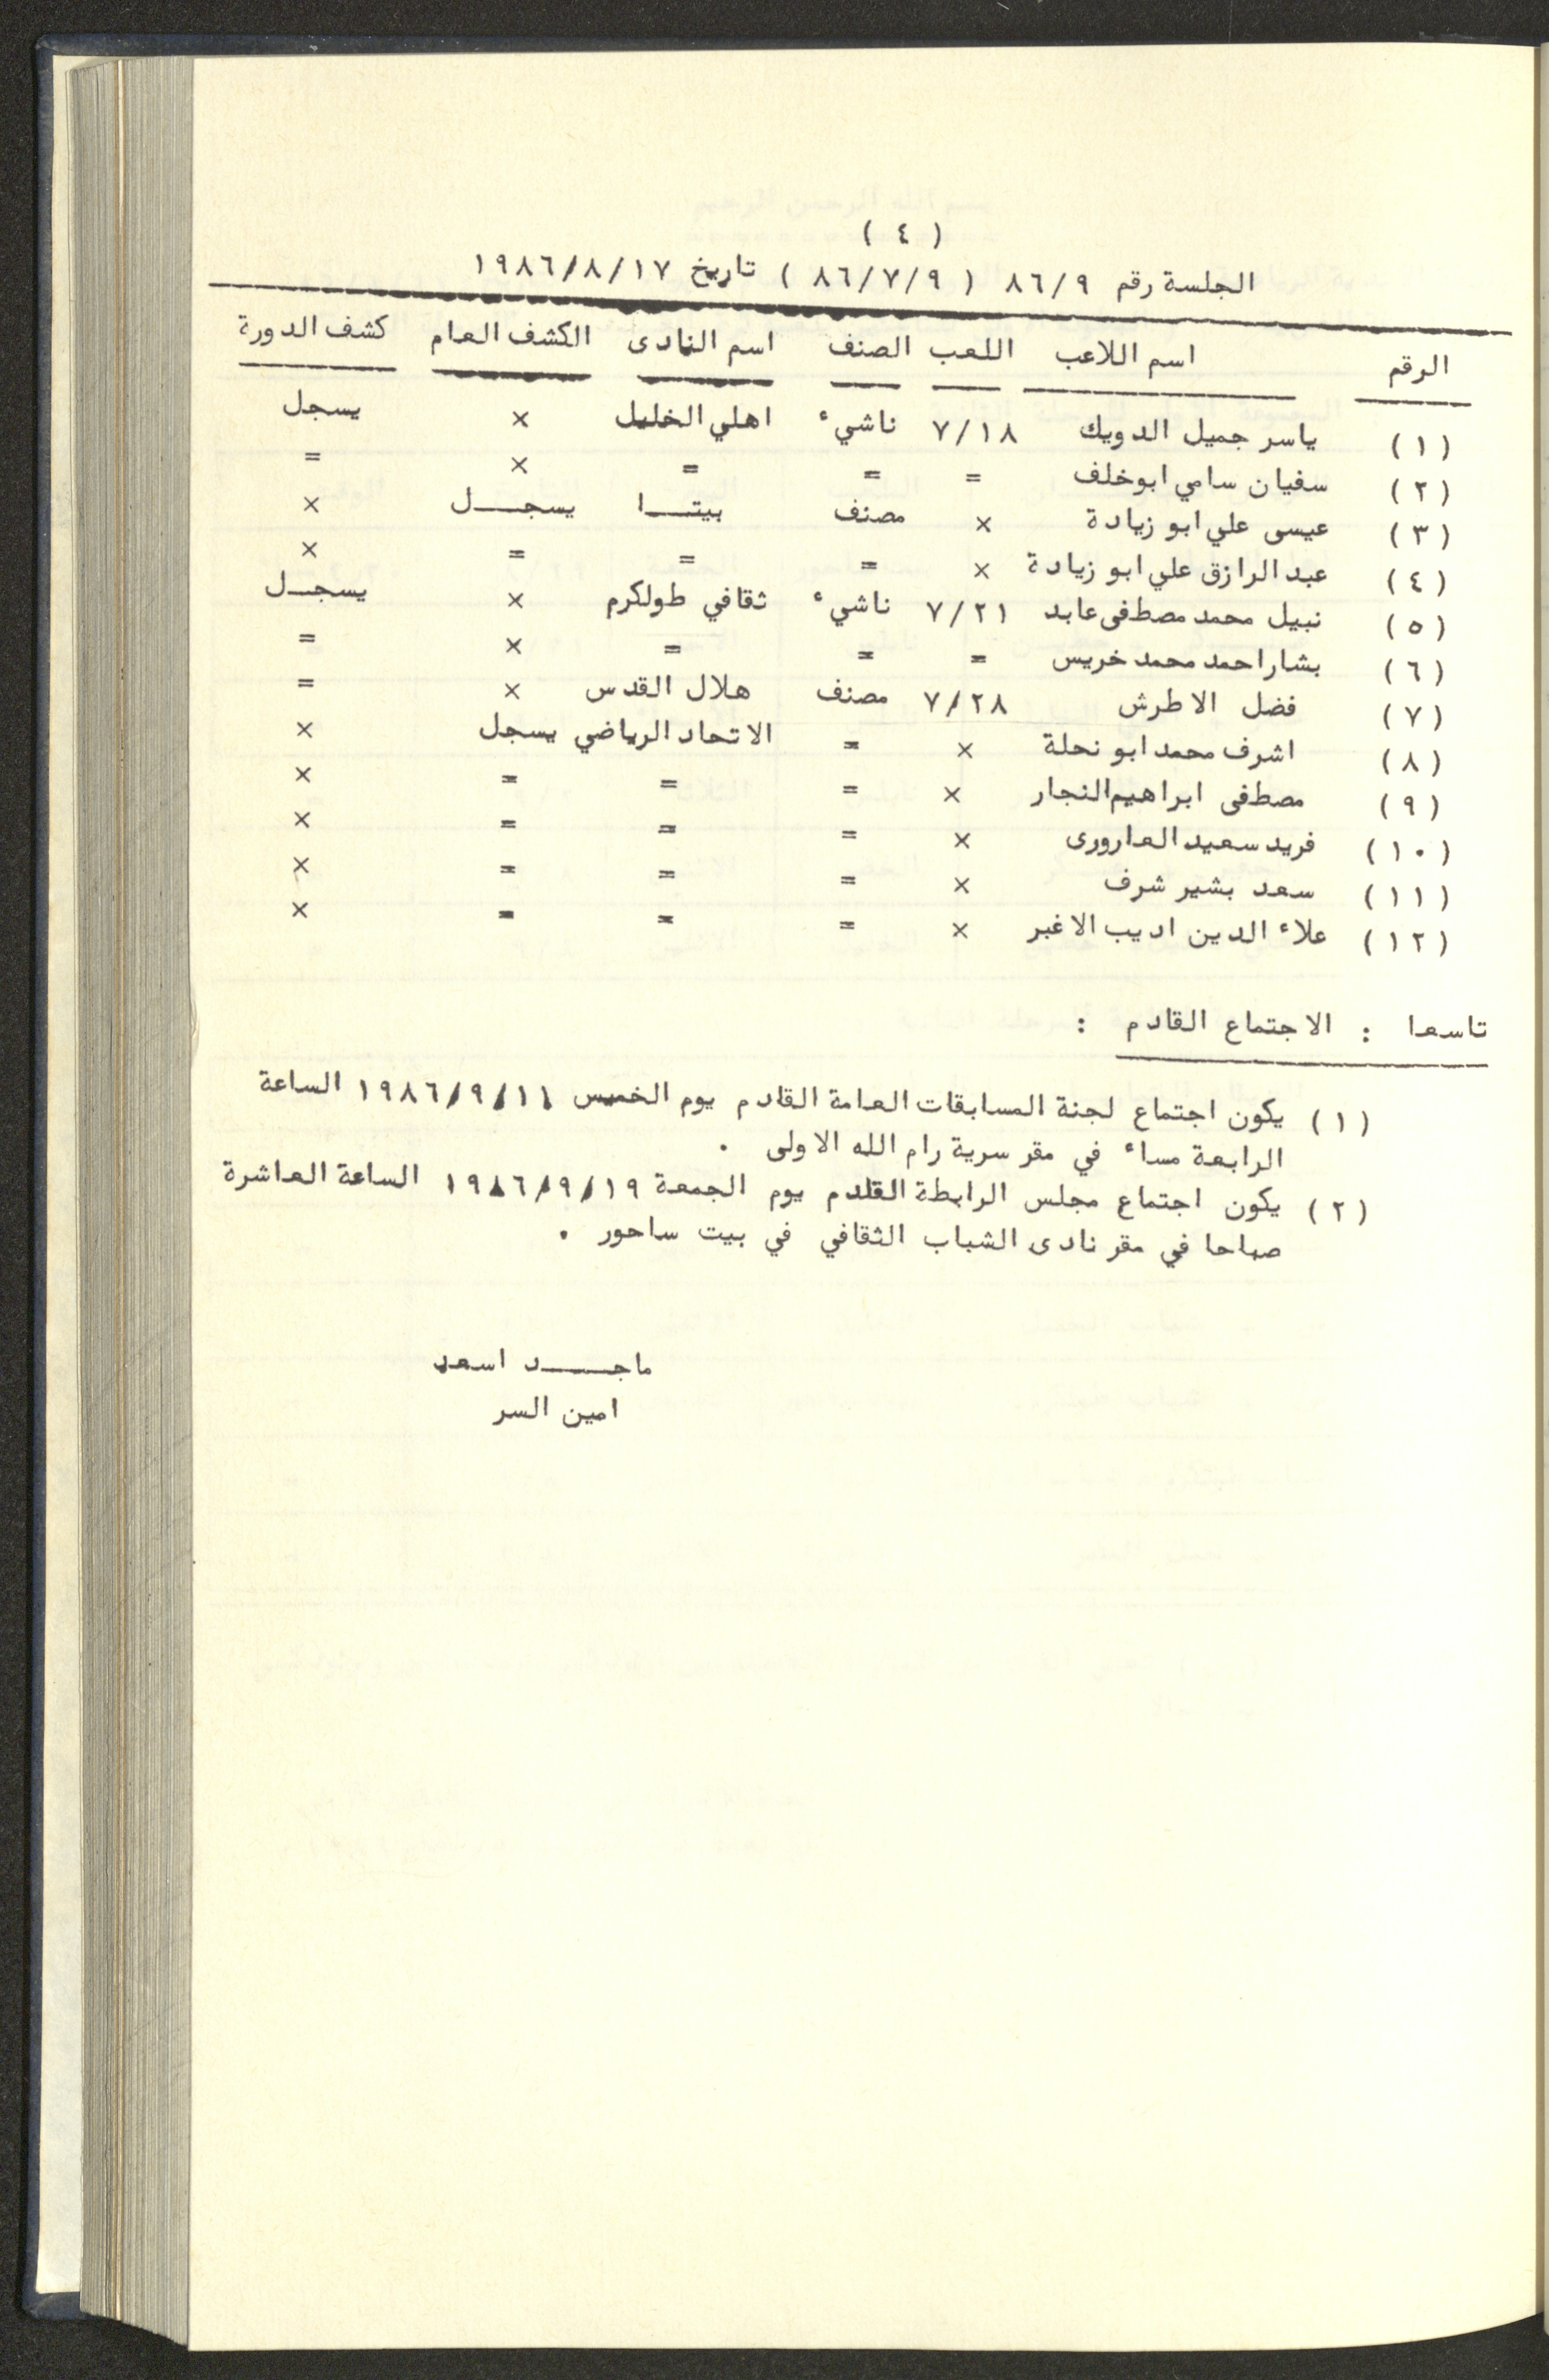 ( ٤ )
الجلسة رقم ٨٦/٩ ( ٨٦/٧/٩ ) تاريخ ١٩٨٦/٨/١٧
الرقم اسم اللاعب اللعب الصنف اسم النادى الكشف العام كشف الدورة
(١) ياسر جميل الدويك ٧/١٨ ناشيء اهلي الخليل × يسجل
(٢) سفيان سامي ابوخلف = = = × =
(٣) عيسى علي ابو زيادة × مصنف بيتــا يسجــل ×
(٤) عبد الرازق علي ابو زيادة × = = = ×
(٥) نبيل محمد مصطفى عابد ٧/٢١ ناشيء ثقافي طولكرم × يسجـل
(٦) بشار احمد محمد خريس = = = × =
(٧) فضل الاطرش ٧/٢٨ مصنف هلال القدس × =
(٨) اشرف محمد ابو نحلة × = الاتحاد الرياضي يسجل ×
(٩) مصطفى ابراهيم النجار × = = = ×
(١٠) فريد سعيد العارورى × = = = ×
(١١) سعد بشير شرف × = = = ×
(١٢) علاء الدين اديب الاغبر × = = = ×
تاسعا : الاجتماع القادم :
(١) يكون اجتماع لجنة المسابقات العامة القادم يوم الخميس ١٩٨٦/٩/١١ الساعة
الرابعة مساء في مقر سرية رام الله الاولى .
(٢) يكون اجتماع مجلس الرابطة القادم يوم الجمعة ١٩٨٦/٩/١٩ الساعة العاشرة
صباحا في مقر نادى الشباب الثقافي في بيت ساحور .
ماجــــد اسعد
امين السر